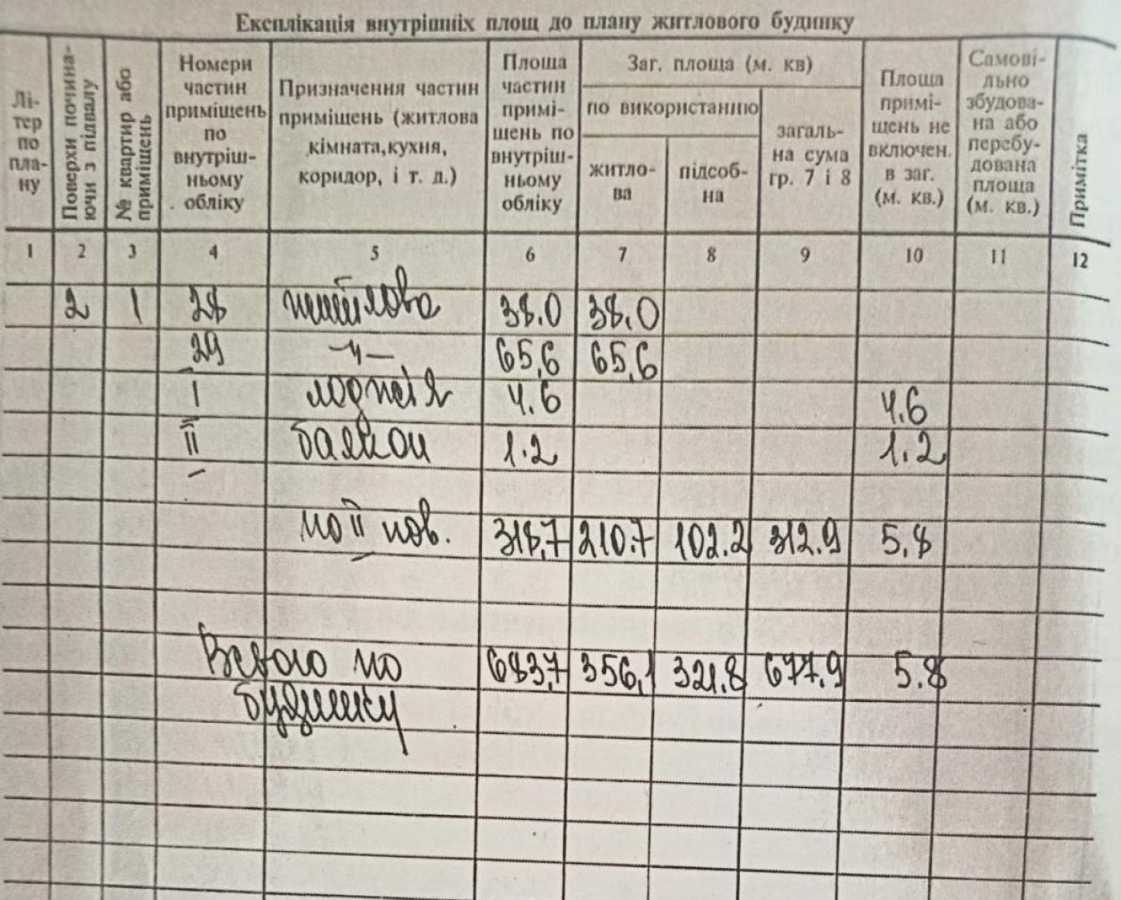 Експлікація внутрішніх площ до плану житлового будинку
Лі-
тер
по
пла-
ну
Поверхи почина-
ючи з підвалу
№ квартир або
приміщень
Номери
частин
приміщень
по
внутріш-
ньому
обліку
Призначення частин
приміщень (житлова
кімната,кухня,
коридор, і т. д.)
Площа
частин
примі-
щень по
внутріш-
ньому
обліку
Заг. площа (м. кв)
по використанню
житло-
ва
підсоб-
на
загаль-
на сума
гр. 7 і 8
Площа
примі-
щень не
включен.
в заг.
(м. кв.)
Самові-
льно
збудова-
на або
перебу-
дована
площа
(м. кв.)
Примітка
1 2 3 4 5 6 7 8 9 10 11 12
2 1 28 житлова 38.0 38,0
29 -"- 65,6 65,6
I лоджія 4.6 4.6
II балкон 1.2 1.2
по II пов. 318,7 210.7 102.2 312.9 5,8
Всього по 683,7 356,1 321.8 677.9 5.8
будинку